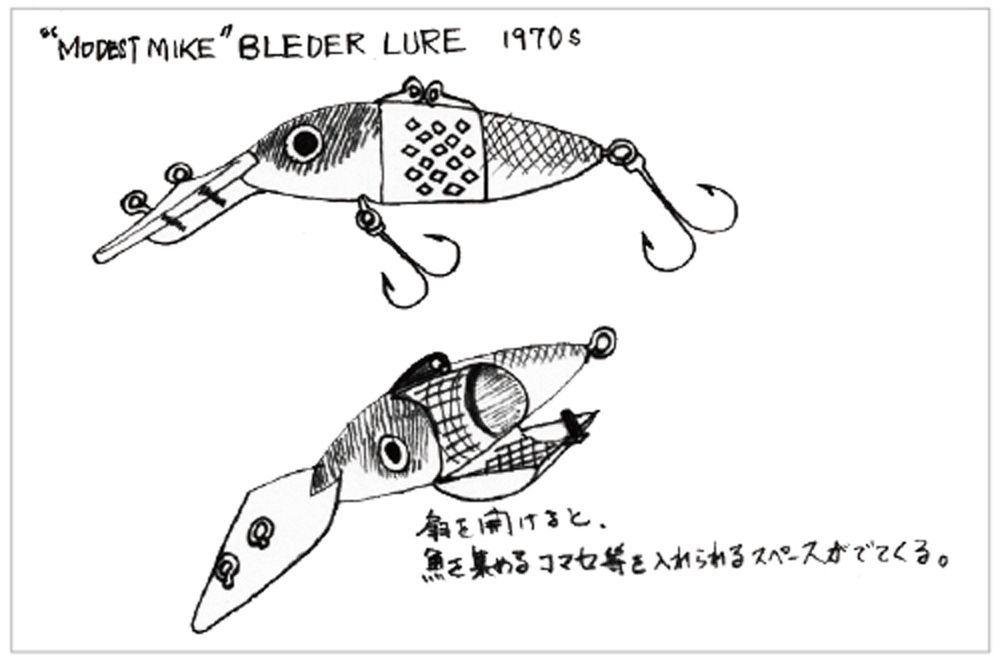 "MODEST MIKE" BLEDER LURE 1970s
扉を開けると、
魚を集めるコマセ等を入れられるスペースがでてくる。